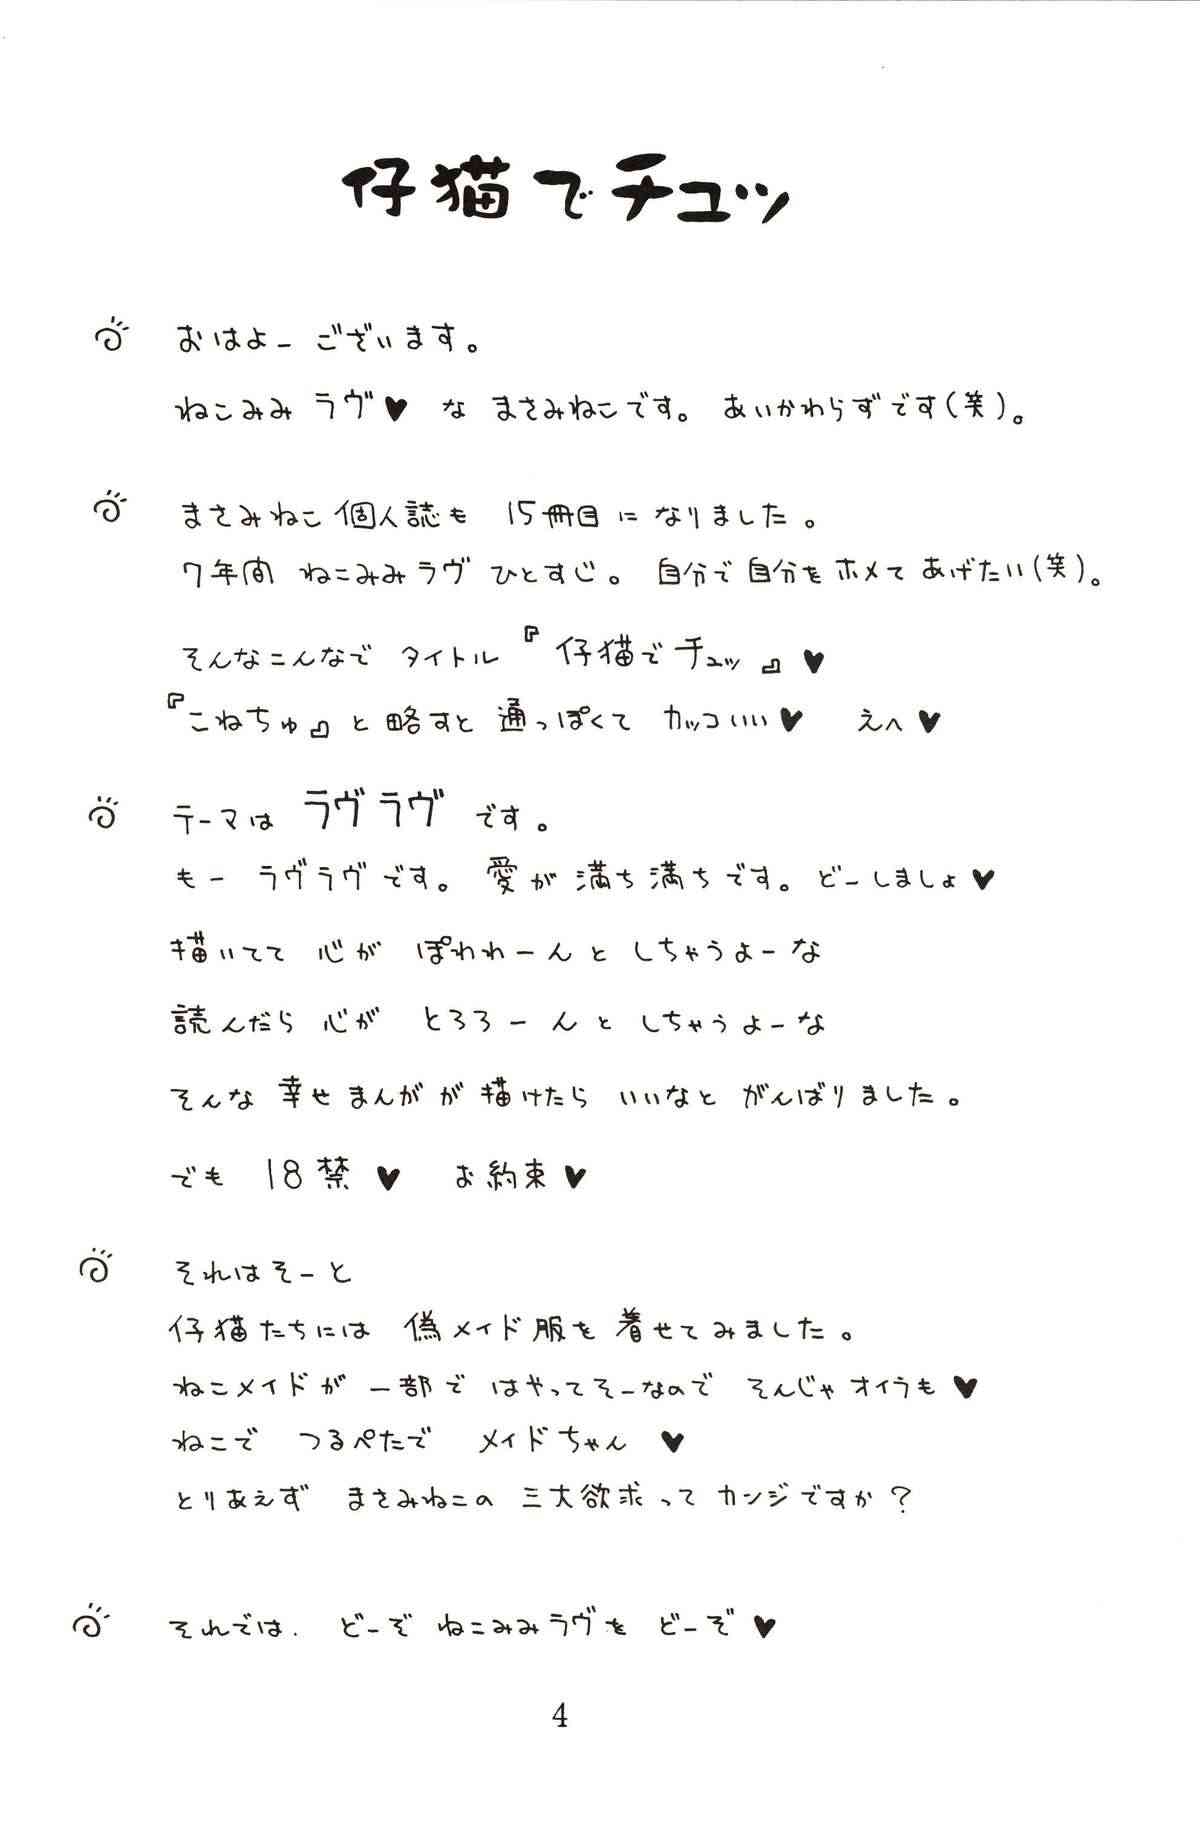 仔猫でチュッ
おはよー ございます。
ねこみみ ラヴ♥ な まさみねこです。 あいかわらずです(笑)。
まさみねこ 個人誌も 15冊目に なりました。
7年間 ねこみみラヴ ひとすじ。 自分で 自分を ホメて あげたい(笑)。
そんなこんなで タイトル 『仔猫で チュッ』♥
『こねちゅ』と 略すと 通っぽくて カッコいい♥ えへ♥
テーマは ラヴラヴ です。
もー ラヴラヴです。 愛が 満ち満ちです。 どーしましょ♥
描いてて 心が ぽわわーんと しちゃうよーな
読んだら 心が とろろーんと しちゃうよーな
そんな 幸せまんがが 描けたら いいなと がんばりました。
でも 18禁♥ お約束♥
それはそーと
仔猫たちには 偽メイド服を 着せてみました。
ねこメイドが 一部で はやってそーなので そんじゃオイラも♥
ねこで つるぺたで メイドちゃん♥
とりあえず まさみねこの 三大欲求って カンジですか?
それでは. どーぞ ねこみみラヴを どーぞ♥
4